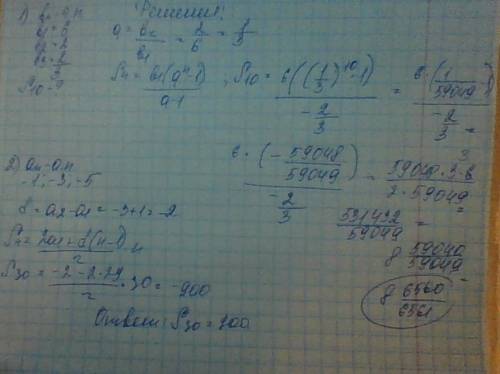 Решения:
1) bn - г.п.
b1 = 6
b2 = 2
b3 = 2/3
S10 - ?
q = b2/b1 = 2/6 = 1/3
Sn = b1(q^n - 1)/(q - 1), S10 = 6((1/3)^10 - 1)/(-2/3) = 6 · (1/59049)/(-2/3) =
6 · (-59048/59049)/(-2/3) = 59048 · 3 · 6/(2 · 59049) =
531432/59049 =
8 59040/59049 =
8 6560/6561
2) an - а.п.
-1, -3, -5
d = a2 - a1 = -3 + 1 = -2
Sn = (2a1 + d(n-1))/2 · n
S30 = (-2 - 2 · 29)/2 · 30 = -900
Ответ: S30 = 900